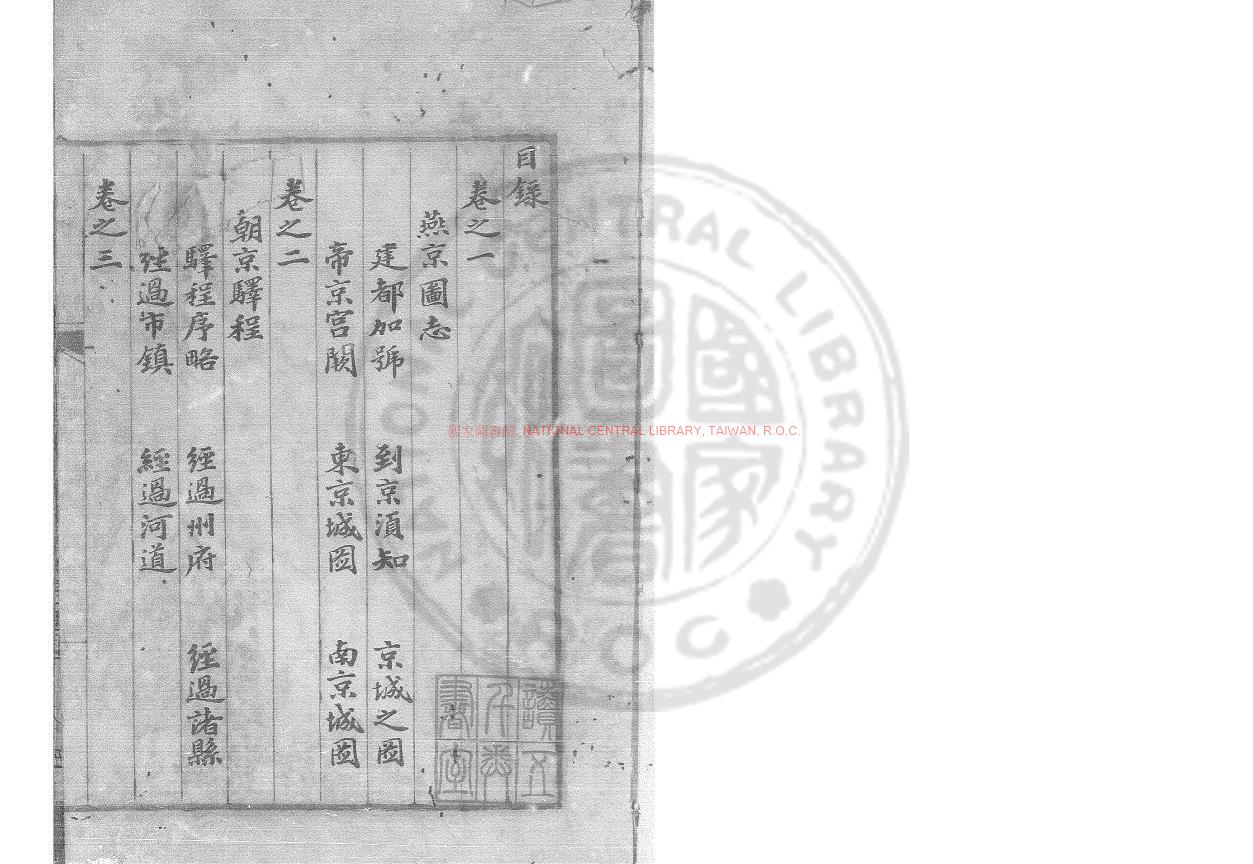 目錄
卷之一
燕京圖志
建都加號 到京湏知 京城之啚
帝京宮闕 東京城啚 南京城啚
卷之二
朝京驛程
驛程序略 經過州府 經過諸縣
經過市鎮 經過河道
卷之三
NATIONAL CENTRAL LIBRARY, TAIWAN, R.O.C.